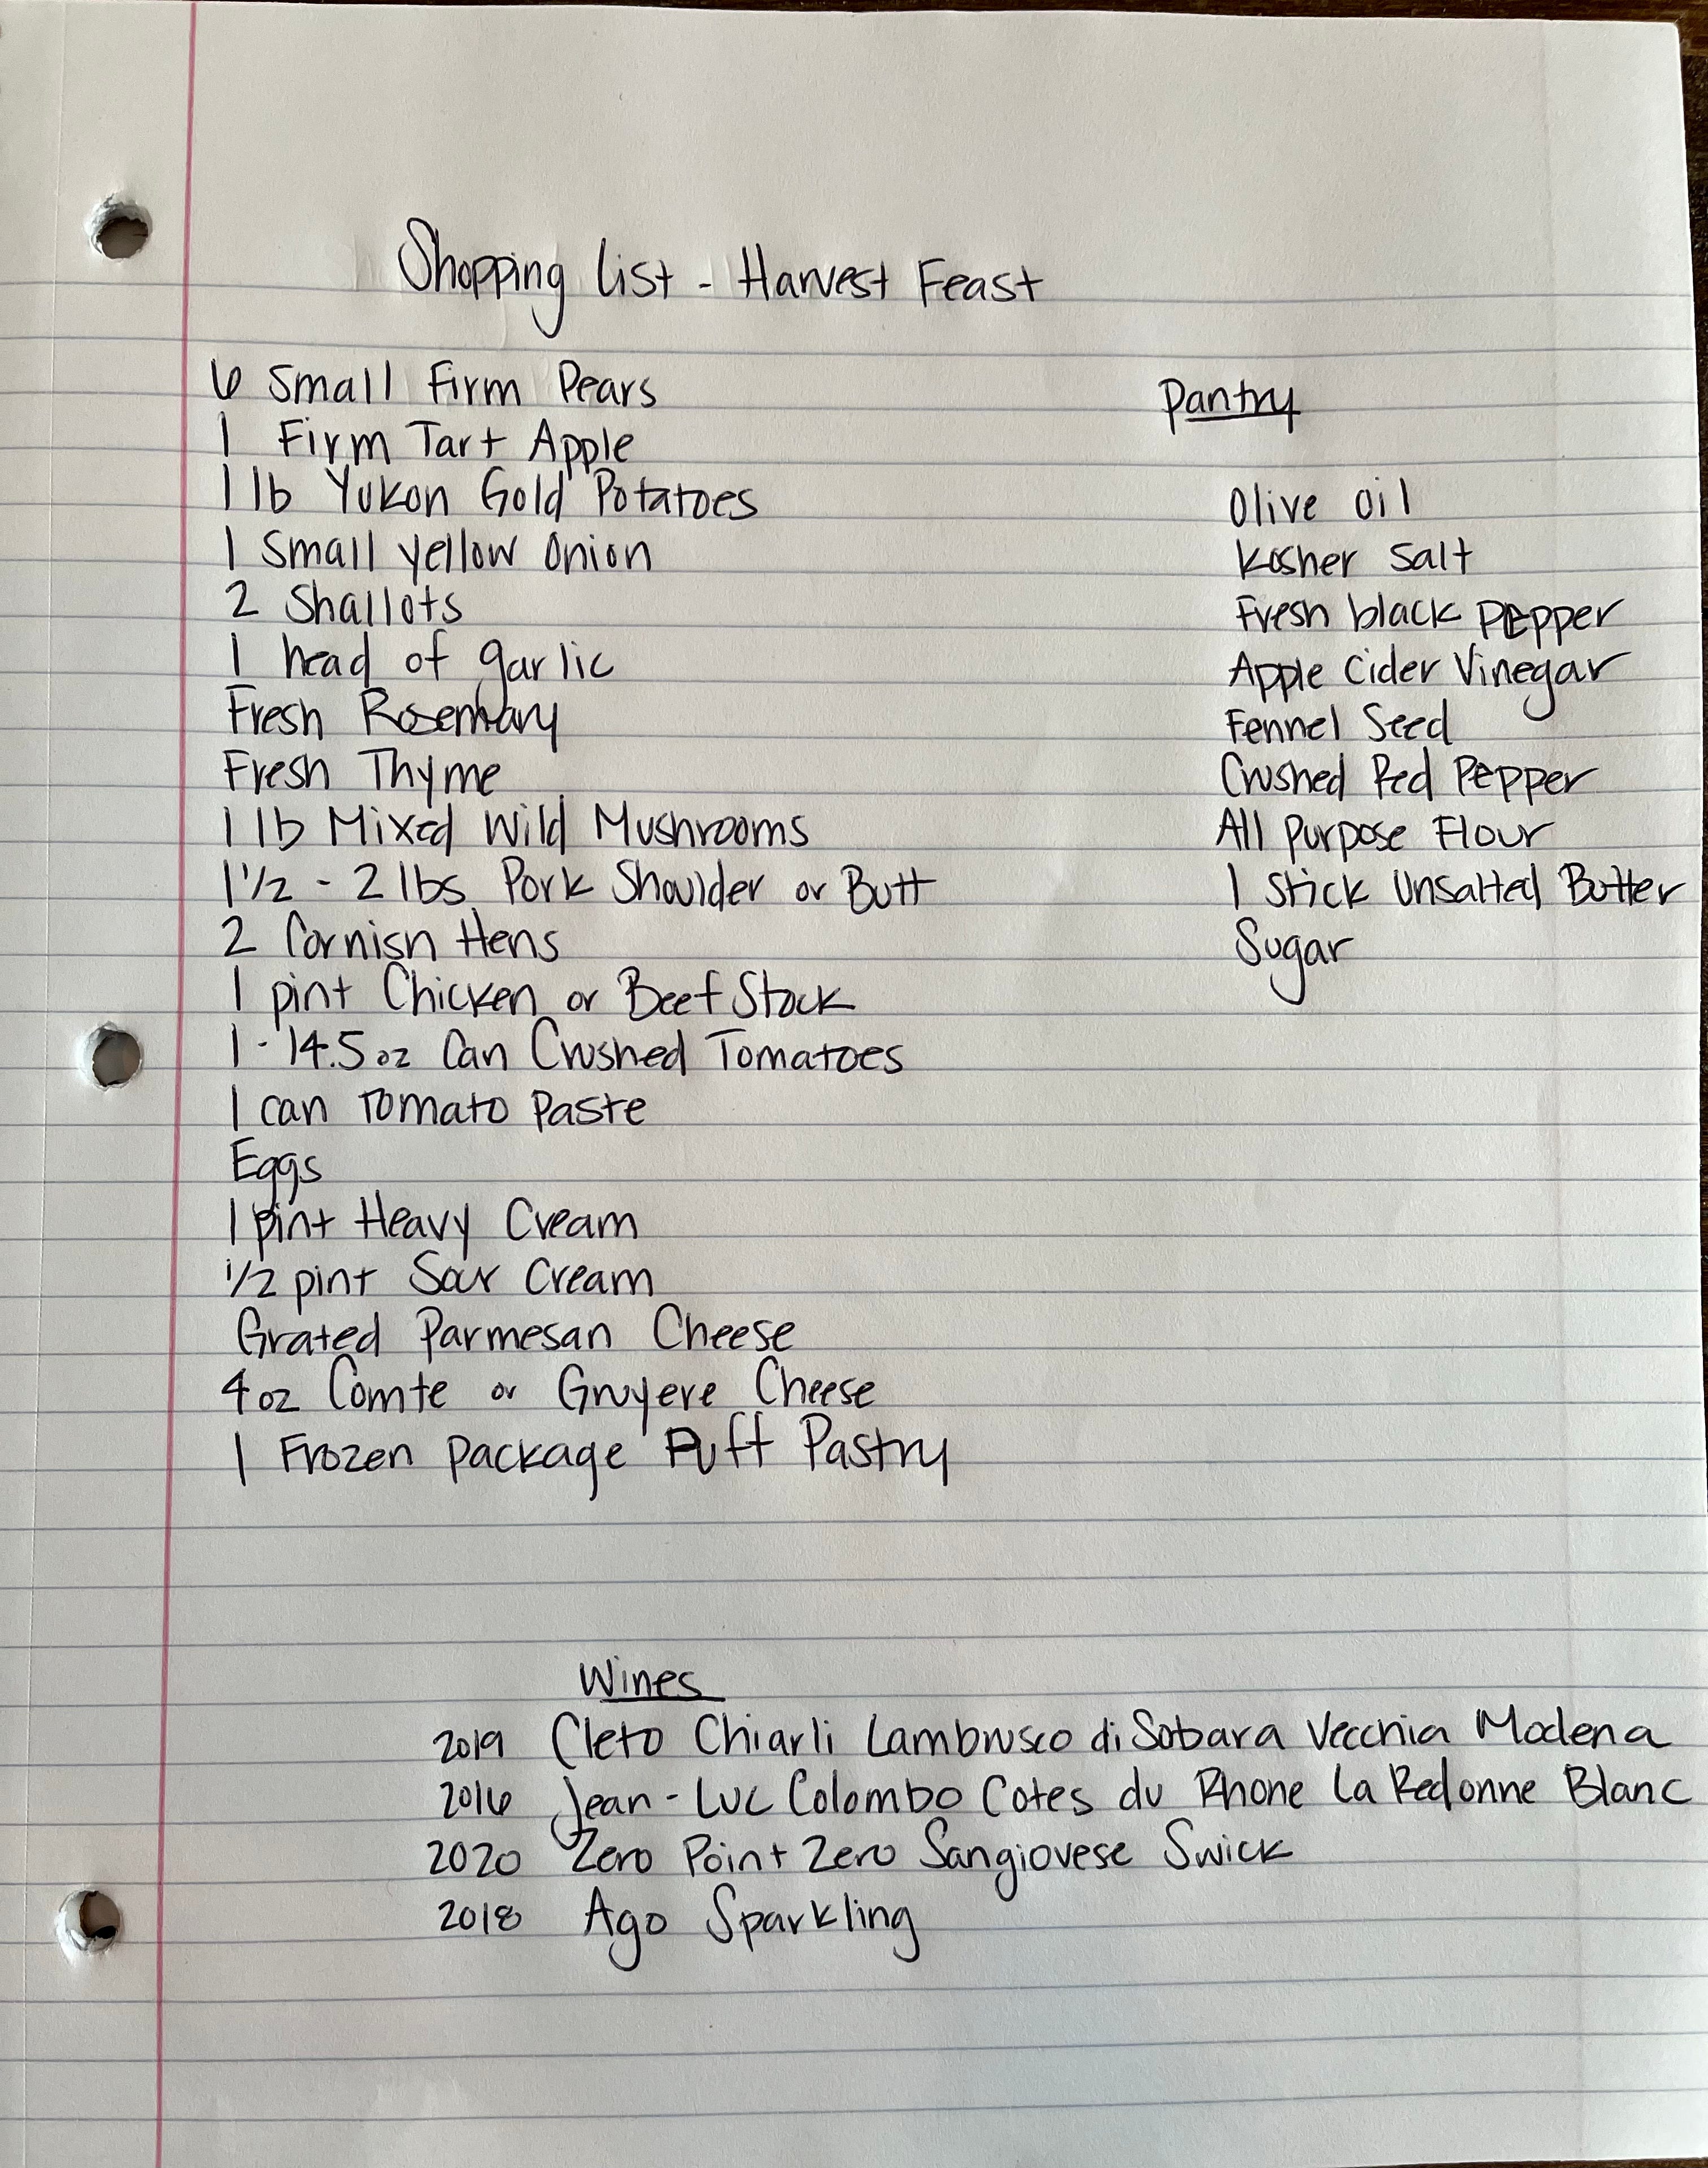 Shopping List - Harvest Feast
6 Small Firm Pears
1 Firm Tart Apple
1 lb Yukon Gold Potatoes
1 Small Yellow Onion
2 Shallots
1 head of garlic
Fresh Rosemary
Fresh Thyme
1 lb Mixed Wild Mushrooms
1 1/2 - 2 lbs. Pork Shoulder or Butt
2 Cornish Hens
1 pint Chicken or Beef Stock
1 - 14.5 oz Can Crushed Tomatoes
1 can Tomato Paste
Eggs
1 pint Heavy Cream
1/2 pint Sour Cream
Grated Parmesan Cheese
4 oz Comte or Gruyere Cheese
1 Frozen Package Puff Pastry
Pantry
Olive Oil
Kosher Salt
Fresh black Pepper
Apple Cider Vinegar
Fennel Seed
Crushed Red Pepper
All Purpose Flour
1 Stick Unsalted Butter
Sugar
Wines
2019 Cleto Chiarli Lambrusco di Sobara Vecchia Modena
2016 Jean-Luc Colombo Cotes du Rhone La Redonne Blanc
2020 Zero Point Zero Sangiovese Swick
2018 Ago Sparkling